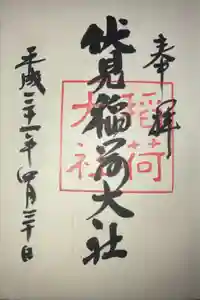 奉拝
伏見稲荷大社
稲荷大社
平成二十一年四月三十日